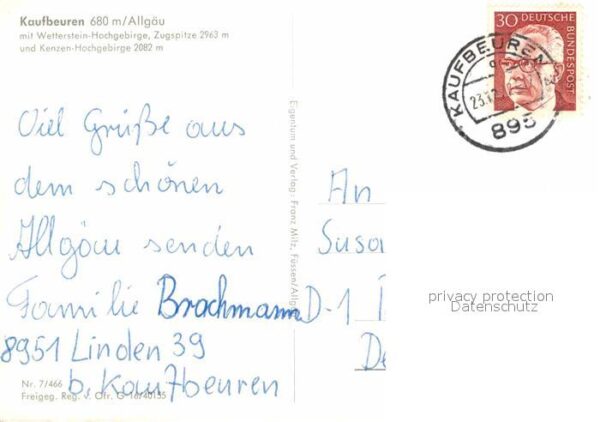 Kaufbeuren 680 m/Allgäu
mit Wetterstein-Hochgebirge, Zugspitze 2963 m
und Kenzen-Hochgebirge 2082 m
30 DEUTSCHE
BUNDESPOST
KAUFBEUREN
895
Viel Grüße aus
dem schönen
Allgäu senden
Familie Brachmann
8951 Linden 39
b. Kaufbeuren
Nr. 7/466
Freigeg. Reg. v. Ofr. G 16/40155
Eigentum und Verlag: Franz Milz, Füssen/Allg
An
Susa
D-1
De
privacy protection
Datenschutz